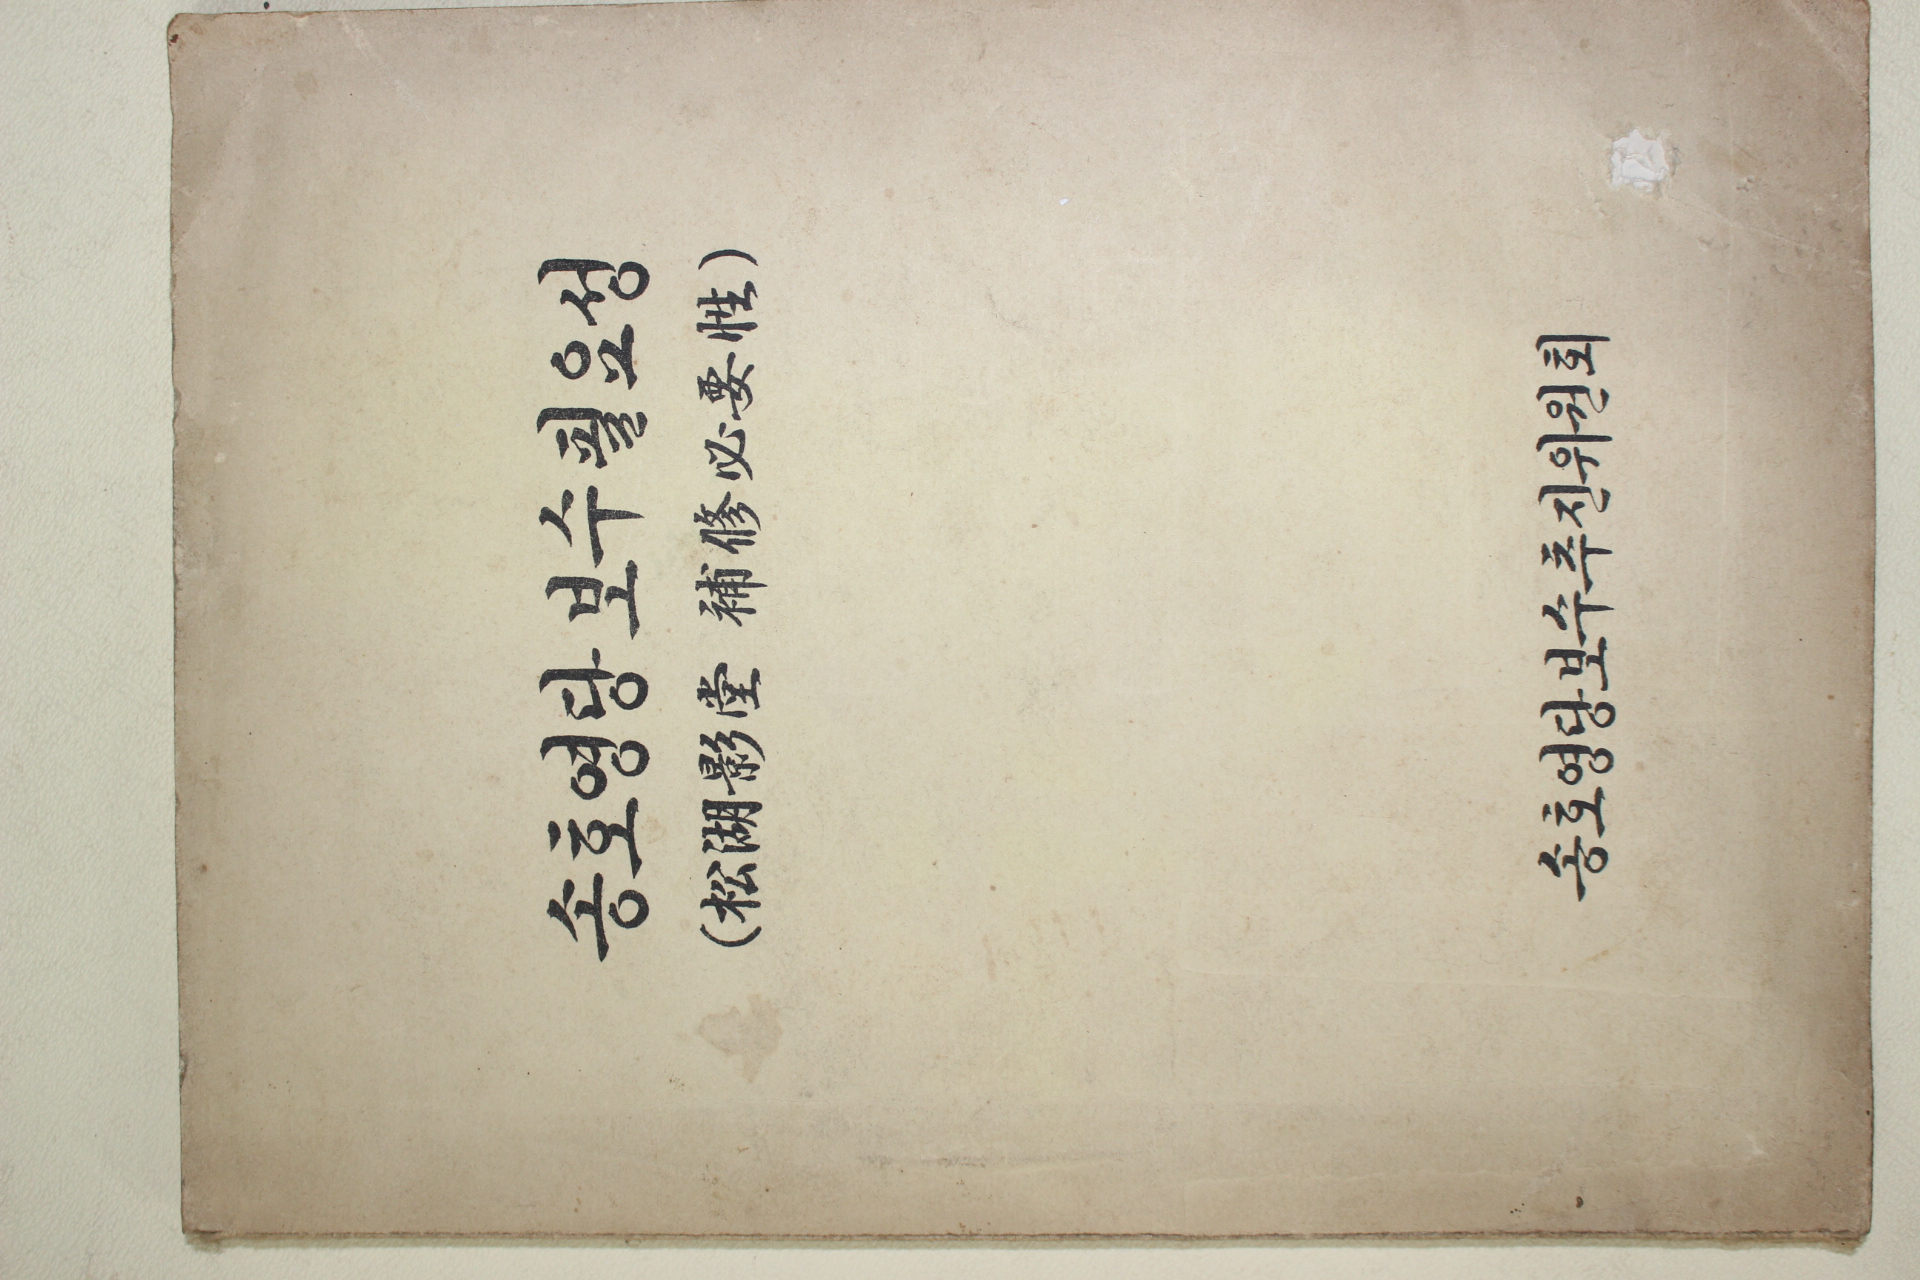 송호영당 보수 필요성
(松湖影堂 補修必要性)
송호영당보수추진위원회